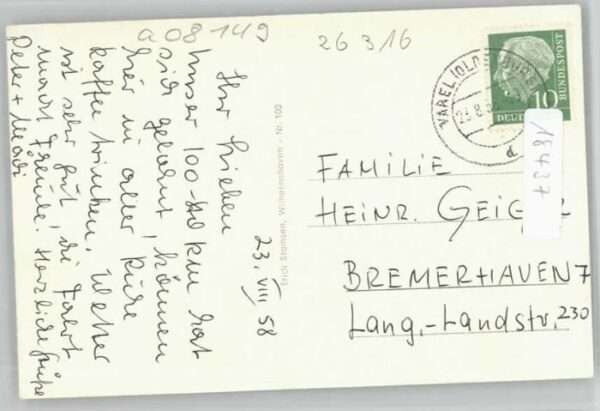 a 08149
26 3/16
23. VIII 58
Ihr Lieben
Unser 100-40 km hat
sich gelohnt, können
hier in aller Ruhe
Kaffee trinken. Wetter
ist sehr gut, die Fahrt
macht Freude! Herzliche Grüße
Peter +
Erich Stamsen, Wilhelmshaven - Nr. 100
VAREL (OLDENBURG)
23.8.
d
10
DEUTSCHE
BUNDESPOST
18437
FAMILIE
HEINR. GEIGER
BREMERHAVEN 7
Lang.-Landstr. 230